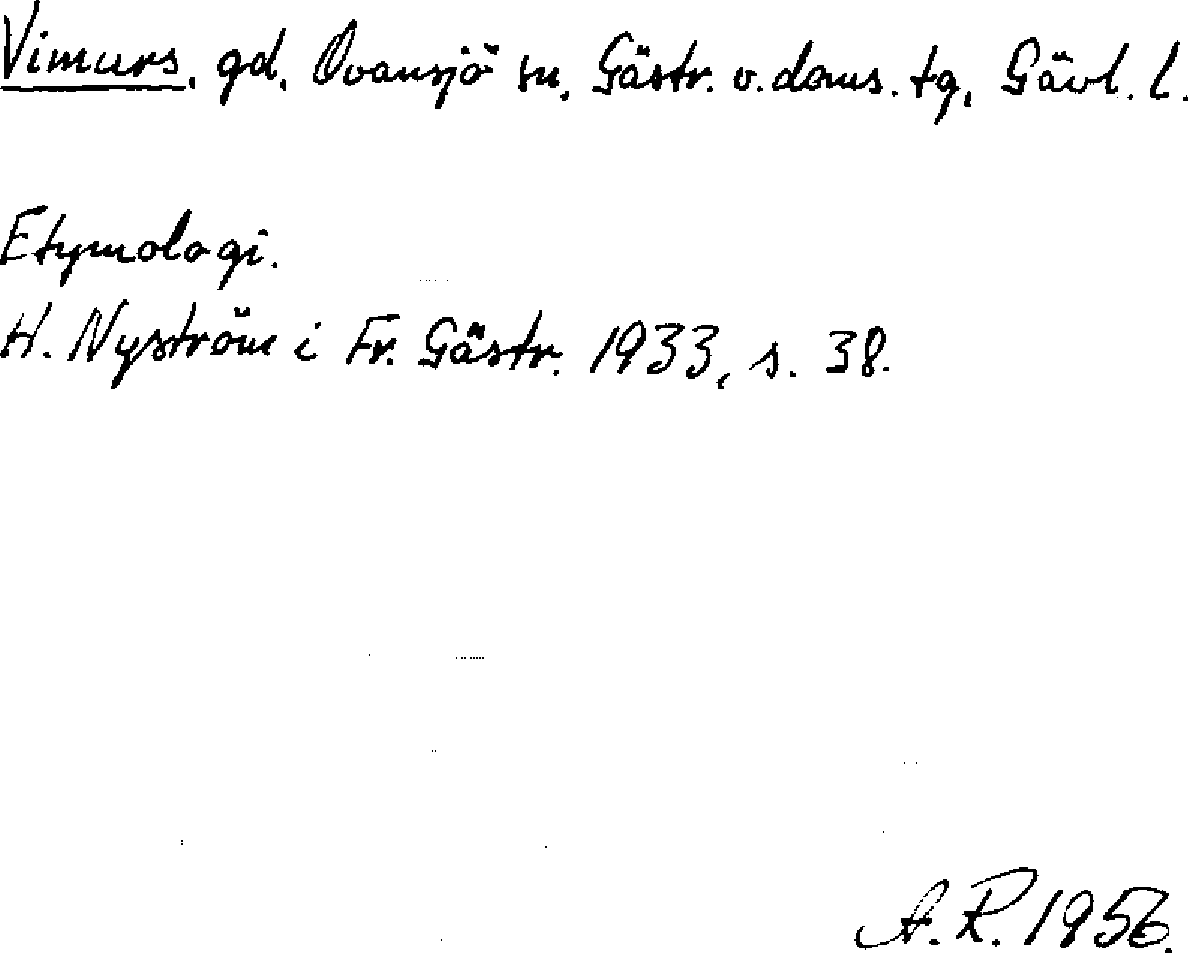 Vimurs, gd, Ovansjö sn, Gästr. v. doms. tg, Gävl. l.
Etymologi.
H. Nyström i Fr. Gästr. 1933, s. 38.
A. R. 1956.